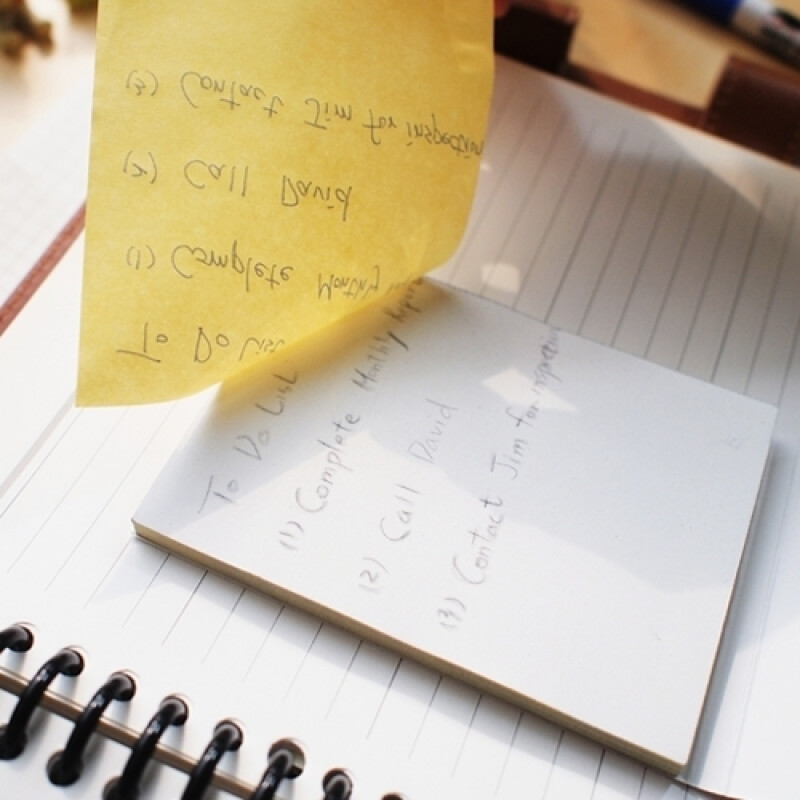 To Do List
(1) Complete Monthly Report
(2) Call David
(3) Contact Jim for inspection
To Do List
(1) Complete Monthly
(2) Call David
(3) Contact Jim for inspection